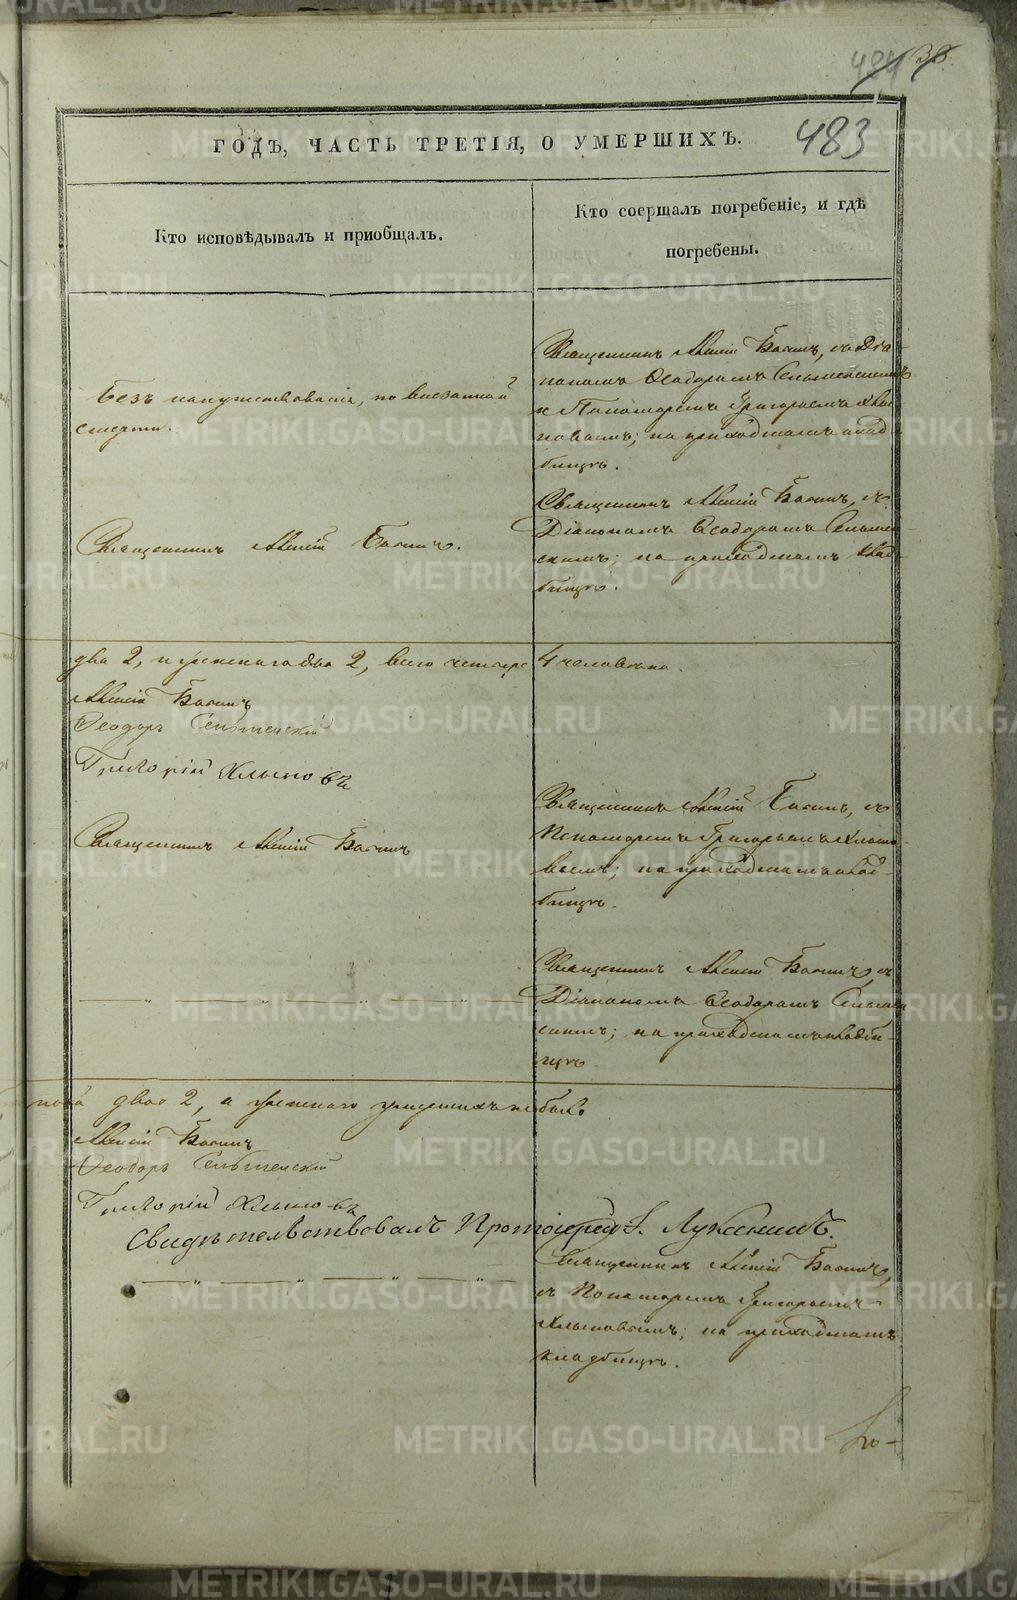 38.
483
ГОДЪ, ЧАСТЬ ТРЕТІЯ, О УМЕРШИХЪ.
Кто исповѣдывалъ и пріобщалъ.
Кто соершалъ погребеніе, и гдѣ
погребены.
Безъ напутствованія, по внезапной
смерти.
Священникъ Алексій Басинъ, съ Діа-
кономъ Ѳеодоромъ Сельменскимъ
и Пономаремъ Григорьемъ Хлы-
новымъ; на приходскомъ клад-
бищѣ.
Священникъ Алексій Басинъ.
Священникъ Алексій Басинъ, съ
Діакономъ Ѳеодоромъ Сельмен-
скимъ; на приходскомъ клад-
бищѣ.
два 2, и женскаго два 2, всего четыре 4 человѣка.
Алексій Басинъ
Ѳеодоръ Сельменскій
Григорій Хлыновъ
Священникъ Алексій Басинъ
Священникъ Алексій Басинъ, съ
Пономаремъ Григорьемъ Хлыно-
вымъ; на приходскомъ клад-
бищѣ.
Священникъ Алексій Басинъ, съ
Діакономъ Ѳеодоромъ Сельмен-
скимъ; на приходскомъ кладби-
щѣ.
пола двое 2, а женскаго умершихъ не было
Алексій Басинъ
Ѳеодоръ Сельменскій
Григорій Хлыновъ
Свидѣтельствовалъ Протоіерей І. Луканинъ.
Священникъ Алексій Басинъ,
съ Пономаремъ Григорьемъ
Хлыновымъ; на приходскомъ
кладбищѣ.
METRIKI.GASO-URAL.RU